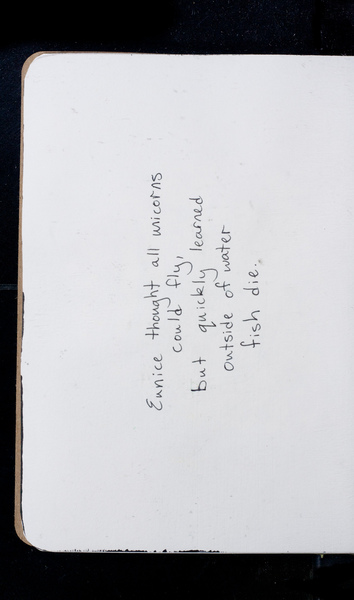 Eunice thought all unicorns
could fly,
but quickly learned
outside of water
fish die.